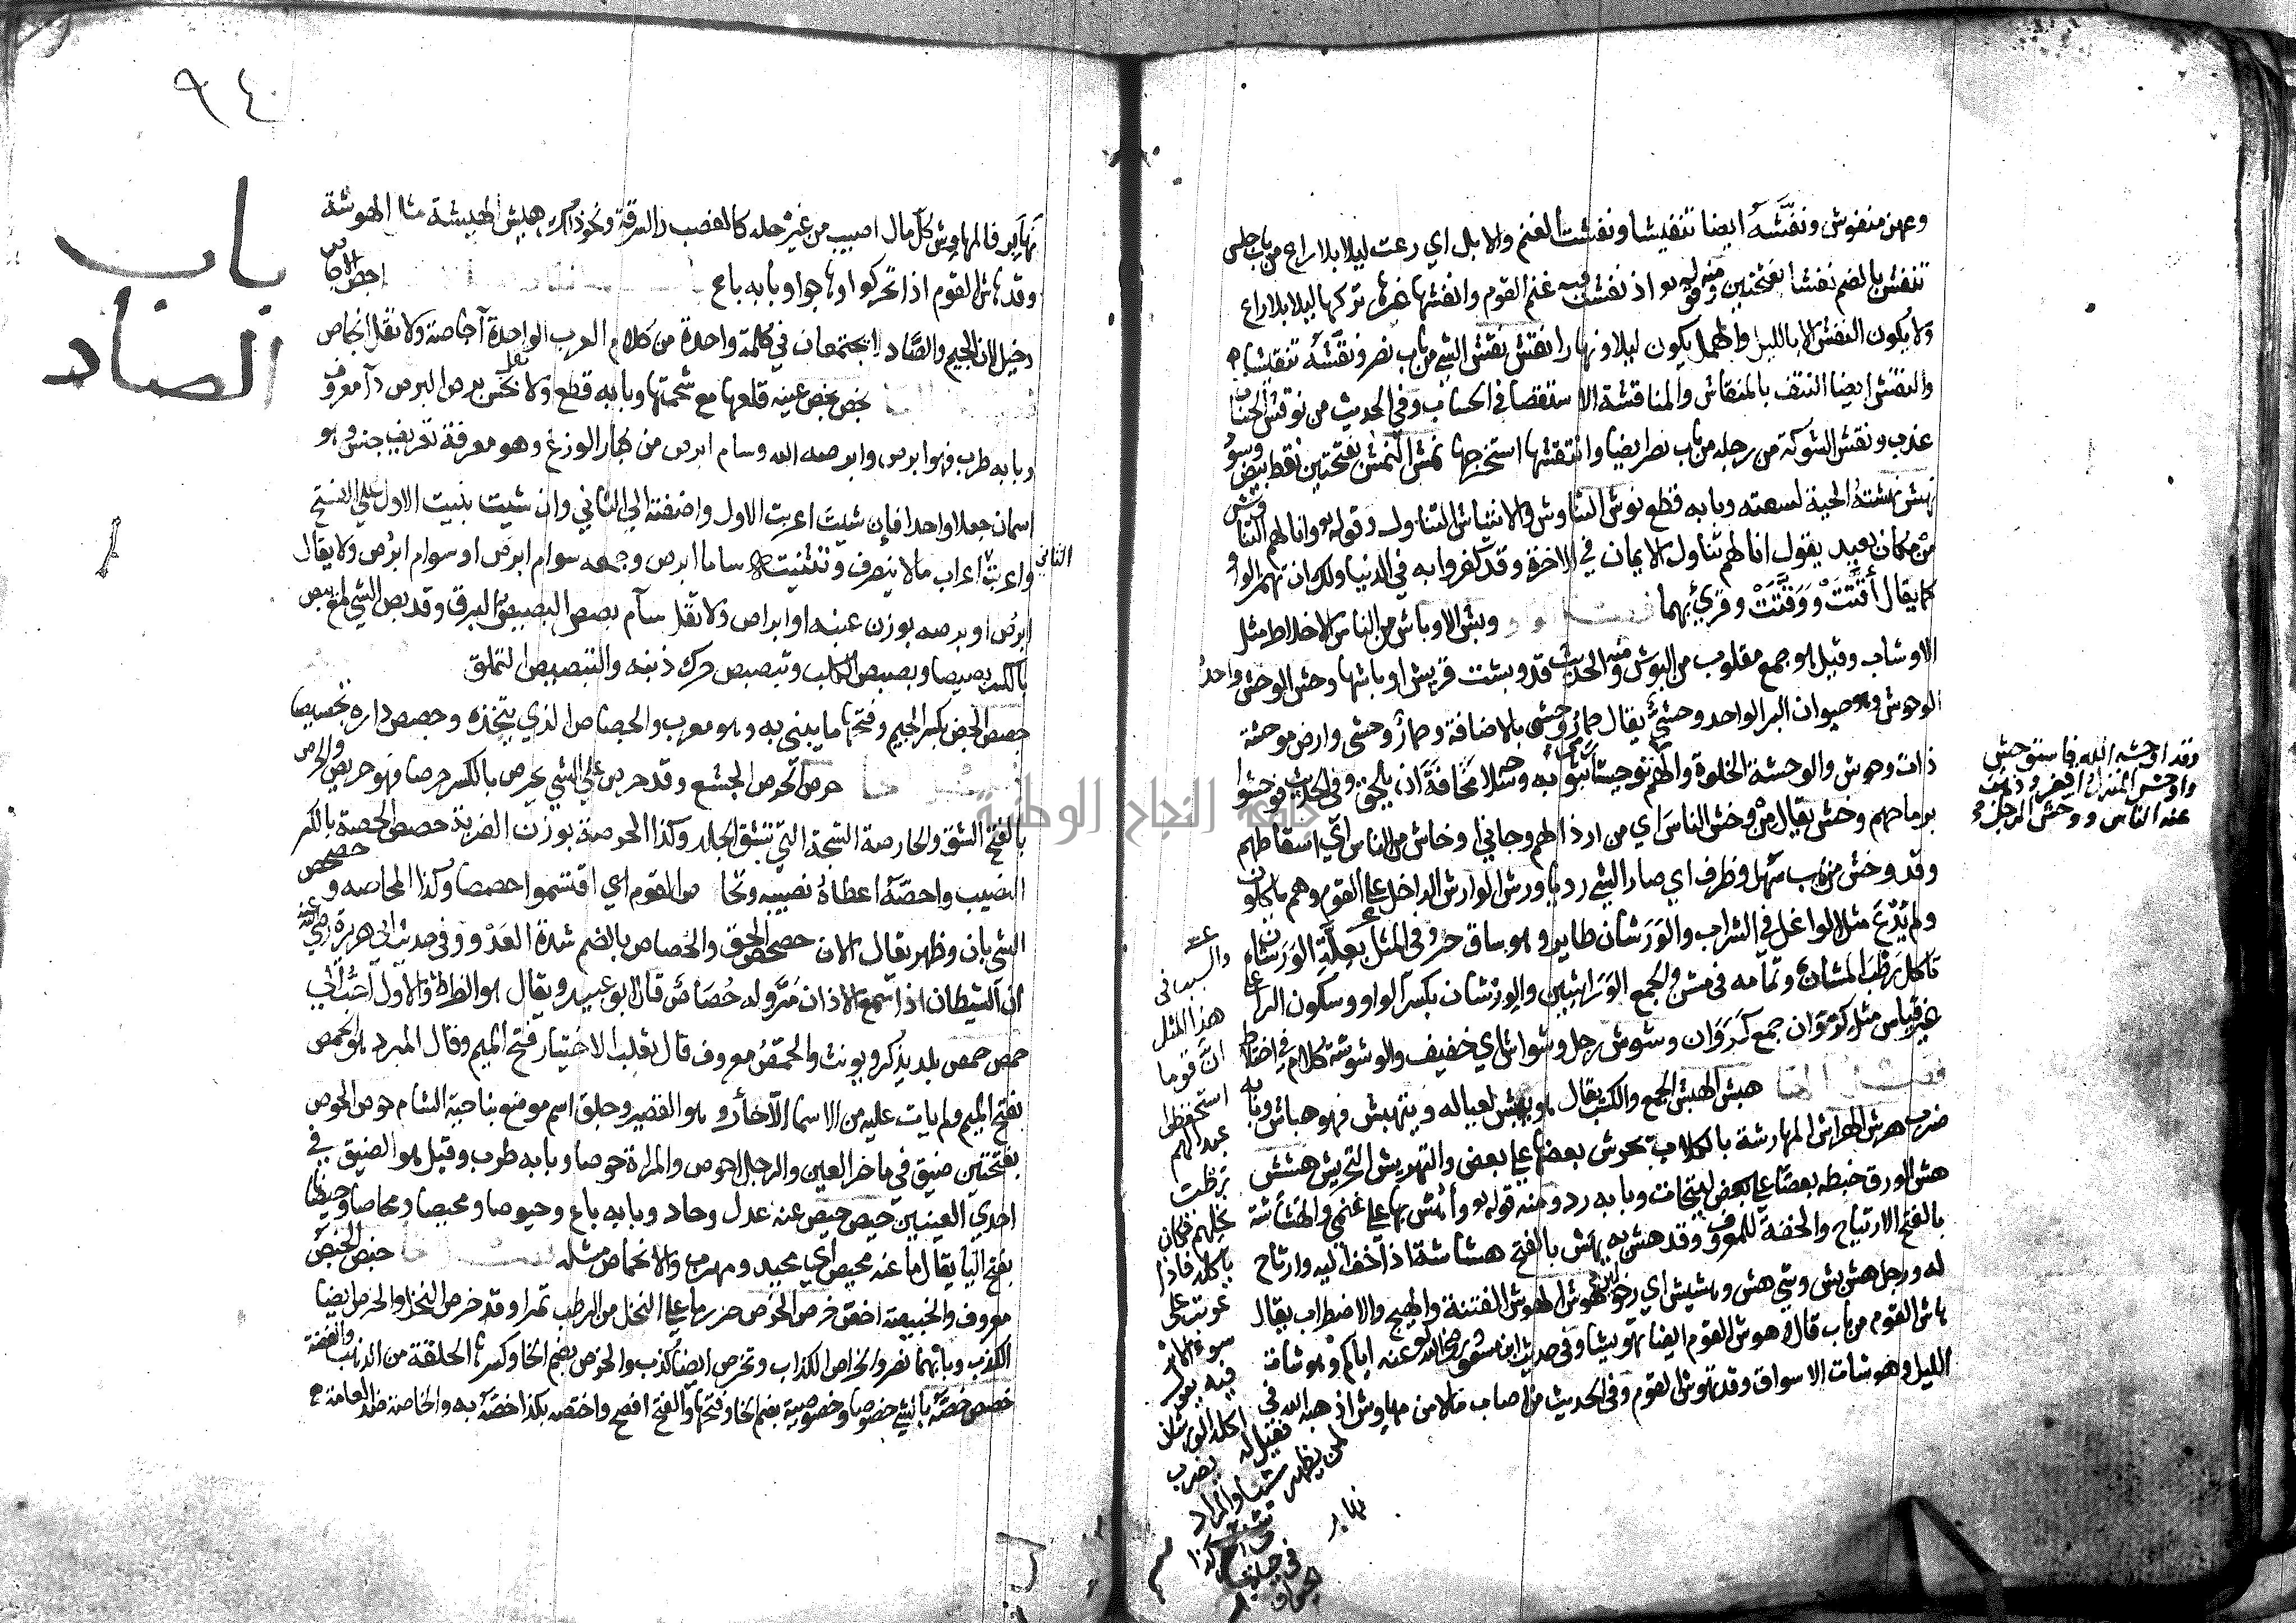 وعهن منفوش ونفشه ايضا تنفيشا ونفشت الغنم والابل اي رعت ليلا بلا راع من باب جلس
تنفش بالضم نفشا بفتحتين ومنه قوله تع اذ نفشت فيه غنم القوم وانفشها غيرها تركها ليلا بلا راع
ولا يكون النفش الا بالليل والهمل يكون ليلا ونهارا نقش نقش الشي من باب نصر ونقشه تنقيشا
والنقش ايضا النتف بالمنقاش والمناقشة الاستقصا في الحساب وفي الحديث من نوقش الحساب
عذب ونقش الشوكة من رجله من باب نصر ايضا وانتقشها استخرجها نمش النمش بفتحتين نقط بيض وسود
نهش نهشته الحية لسعته وبابه قطع نوش التناوش والانتياش التناول وقوله تع وانى لهم التناوش
من مكان بعيد يقول انا لهم تناول الايمان في الاخرة وقد كفروا به في الدنيا ولك ان تهمز الواو
كما يقال أقتت ووقتت وقري بهما وبش الاوباش من الناس الاخلاط مثل
الاوشاب وقيل هو جمع مقلوب من البوش ومنه الحديث قد وبشت قريش اوباشها وحش الوحش واحد
الوحوش وهو حيوان البر الواحد وحشي يقال حمار وحش بالاضافة وحمار وحشي وارض موحشة
ذات وحوش والوحشة الخلوة والهم
برماحهم وخش يقال من وخش الناس اي من ارذالهم وجاني اوخاش من الناس اي اسقاطهم
وقد وخش من باب سهل وظرف اي صار الشي رديا ورش الوارش الداخل على القوم وهم ياكلون
ولم يدع مثل الواغل في الشراب والورشان طاير وهو ساق حر وفي المثل بعلة الورشان
تاكل رطب المشان وتمامه في مشن والجمع الوراشين والورشان بكسر الواو وسكون الرا على
غير قياس مثل كروان جمع كروان وشوش رجل وشواش اي خفيف والوشوشة كلام في اختلاط
هبش الهبش الجمع والكسب يقال هو يهبش لعياله ويتهبش فهو هباش وبابه
ضرب هرش الهراش المهارشة بالكلاب تحرش بعضها على بعض والتهريش التحريش هشش
هش الورق خبطه بعصا على بعض ليتحات وبابه رد ومنه قوله تع وأهش بها على غنمي والهشاشة
بالفتح الارتياح والخفة للمعروف وقد هش به يهش بالفتح هشاشة اذا خف اليه وارتاح
له ورجل هش بش وشي هش وهشيش اي رخو لين هوش الهوش الفتنة والهيج والاضطراب يقال
هاش القوم من باب قال وهوش القوم ايضا تهويشا وفي حديث ابن مسعود رضي الله عنه اياكم وهوشات
الليل وهوشات الاسواق وقد تهوش القوم وفي الحديث من اصاب مالا من مهاوش اذهبه الله في
نهابر
وقد اوحشه الله فاستوحش
واوحش المنزل اقفر وذهب
عنه الناس ووحش الرجل
هذا المثل
ان قوما
استحفظوا
عبدا لهم
رطب
نخلهم فكان
ياكله فاذا
عوتب على
سوء الاثر
فيه يقول
اكله الورشان
فقيل له
يضرب
لمن يظهر شيا والمراد
٩٤
باب
الصاد
نهابر فالمهاوش كل مال اصيب من غير حله كالغصب والسرقة ونحو ذلك هيش الهيشة مثل الهوشة
وقد هاش القوم اذا تحركوا وهاجوا وبابه باع اجص الاجاص
دخيل لان الجيم والصاد لا يجتمعان في كلمة واحدة من كلام العرب الواحدة اجاصة ولا تقل انجاص
بخص بخص عينه قلعها مع شحمتها وبابه قطع ولا تقل بخس برص البرص دا معروف
وبابه طرب فهو ابرص وابرصه الله وسام ابرص من كبار الوزغ وهو معرفة تعريف جنس وهو
اسمان جعلا واحدا فان شيت اعربت الاول واضفته الى الثاني وان شيت بنيت الاول على الفتح
واعربت الثاني اعراب مالا ينصرف وتثنيته ساما ابرص وجمعه سوام ابرص او سوام ابرص ولا يقال
ابرص او برصه بوزن عنبه او ابراص ولا تقل سام بصص البصيص البرق وقد بص الشي لمع يبص
بالكسر بصيصا وبصبص الكلب وتبصبص حرك ذنبه والتبصبص التملق
جصص الجص بكسر الجيم وفتحها ما يبنى به وهو معرب والجصاص الذي يتخذه وجصص داره تجصيصا
حرص الحرص الجشع وقد حرص على الشي يحرص بالكسر حرصا فهو حريص والحرص
بالفتح الشق والحارصة الشجة التي تشق الجلد وكذا الحرصة بوزن الضربة حصص الحصة بالكسر
النصيب واحصه اعطاه نصيبه وتحاص القوم اي اقتسموا حصصا وكذا المحاصه وحصحص
الشي بان وظهر يقال الان حصحص الحق والحصاص بالضم شدة العدو وفي حديث ابي هريرة رضي الله عنه
ان الشيطان اذا سمع الاذان مر وله حصاص قال ابو عبيد ويقال هو الضراط والاول احب الي
حمص حمص بلد يذكر ويونث والحمص معروف قال ثعلب الاختيار فتح الميم وقال المبرد هو الحمص
بفتح الميم ولم يات عليه من الاسما الا حلز وهو القصير وجلق اسم موضع بناحية الشام حوص الحوص
بفتحتين ضيق في ماخر العين والرجل احوص والمراة حوصا وبابه طرب وقيل هو الضيق في
احدي العينين حيص حيص عنه عدل وحاد وبابه باع وحيوصا ومحيصا ومحاصا وحيصانا
بفتح اليا يقال ما عنه محيص اي محيد ومهرب والانحياص مثله خبص الخبيص
معروف والخبيصة اخص خرص الخرص حزر ما على النخل من الرطب تمرا وقد خرص النخل والخرص ايضا
الكذب وبابهما نصر والخراص الكذاب وتخرص ايضا كذب والخرص بضم الخا وكسرها الحلقة من الذهب والفضة
خصص خصه بالشي خصوصا وخصوصية بضم الخا وفتحها والفتح افصح واختصه بكذا خصه به والخاصة ضد العامة
جامعة النجاح الوطنية